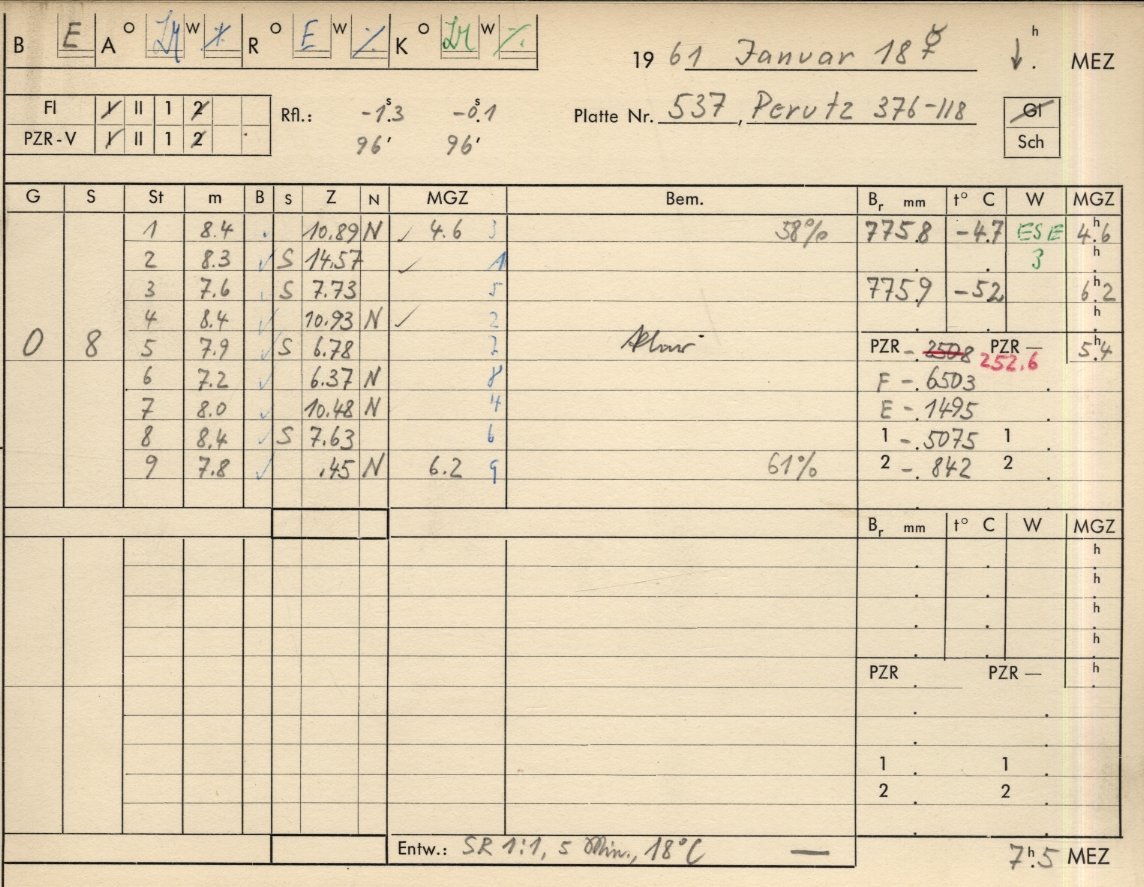 B E A ° LM W ⁒ R ° E W ⁒ K ° LM W ⁒
19 61 Januar 18 ☿ ↓ h . MEZ
Fl I II 1 2 Rfl.: -1ˢ.3 -0ˢ.1 Platte Nr. 537, Perutz 376-118 Gl
PZR-V I II 1 2 96' 96' Sch
G S St m B S Z N MGZ Bem. Bᵣ mm t° C W MGZ
1 8.4 . 10.89 N ✓ 4.6 3 58% 775.8 -4.7 ESE 4ʰ.6
2 8.3 ✓ S 14.57 ✓ 1 3 h
3 7.6 ✓ S 7.73 5 775.9 -5.2 6ʰ.2
4 8.4 ✓ 10.93 N ✓ 2 h
0 8 5 7.9 ✓ S 6.78 7 PZR -. 2508 PZR — 252.6 5ʰ.4
6 7.2 ✓ 6.37 N 8 F -. 6503
7 8.0 ✓ 10.48 N 4 E -. 1495
8 8.4 ✓ S 7.63 6 1 -. 5075 1
9 7.8 ✓ .45 N 6.2 9 61% 2 -. 842 2
Bᵣ mm t° C W MGZ
h
h
h
h
PZR PZR — h
1 1
2 2
Entw.: SR 1:1, 5 Min., 18°C —
7ʰ.5 MEZ